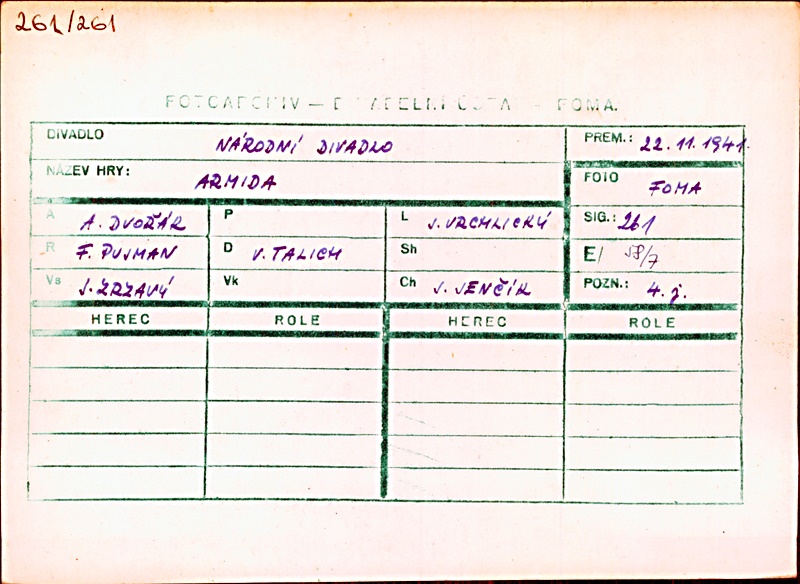 261/261
FOTOARCHIV — DIVADELNÍ ÚSTAV — FOMA
DIVADLO NÁRODNÍ DIVADLO PREM.: 22.11.1941.
NÁZEV HRY: ARMIDA FOTO FOMA
A A. DVOŘÁK P L J. VRCHLICKÝ SIG.: 261
R F. PUJMAN D V. TALICH Sh E/ 58/7
Vs J. ZRZAVÝ Vk Ch J. JENČÍK POZN.: 4. j.
HEREC ROLE HEREC ROLE